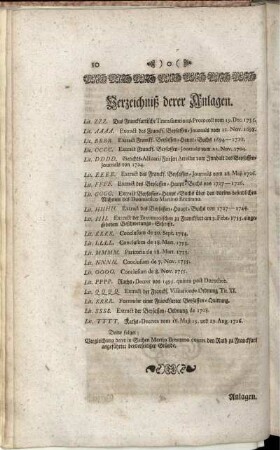 10 ) o (
Verzeichniß derer Anlagen.
Lit. ZZZ. Das Franckfurtische Transmissions Protocoll vom 19. Dec. 1755.
Lit. AAAA. Extract des Franckf. Beysassen-Journals vom 11. Nov. 1698.
Lit. BBBB. Extract Franckf. Beysassen-Haupt-Buchs 1694-1710.
Lit. CCCC. Extract Franckf. Beysassen-Journals vom 21. Nov. 1704.
Lit. DDDD. Gerichts-Attestat über den Innhalt des Beysassen-
Journals von 1704.
Lit. EEEE. Extract des Franckf. Beysassen-Journals vom 28. May 1716.
Lit. FFFF. Extract des Beysassen-Haupt-Buchs von 1717-1726.
Lit. GGGG. Extract Beysassen-Haupt-Buchs über den
Nahmen des Martino Brentano.
Lit. HHHH. Extract des Beysassen-Haupt-Buchs von 1727-1744.
Lit. IIII. Extract der Brentanoischen zu Franckfurt am 3. Febr. 1755. einge-
gebenen Beschwerungs-Schrifft.
Lit. KKKK. Conclusum de 10. Sept. 1754.
Lit. LLLL. Conclusum de 18. Mart. 1755.
Lit. MMMM. Paritoria de 18. Mart. 1755.
Lit. NNNN. Conclusum de 7. Nov. 1755.
Lit. OOOO. Conclusum de 8. Nov. 1755.
Lit. PPPP. Raths-Decret von 1495. quoten post Dorotheæ.
Lit. QQQQ. Extract der Franckf. Visitations-Ordnung Tit. XI.
Lit. RRRR. Formular einer Franckfurter Beysassen-Ordnung.
Lit. SSSS. Extract der Beysassen-Ordnung de 1708.
Lit. TTTT. Raths-Decret vom 18. May, 13. und 25. Aug. 1716.
Deme folget:
Vergleichung derer in Sachen Martin Brentano contra den Rath zu Franckfurt
angeführter Gründe.
Anlagen.